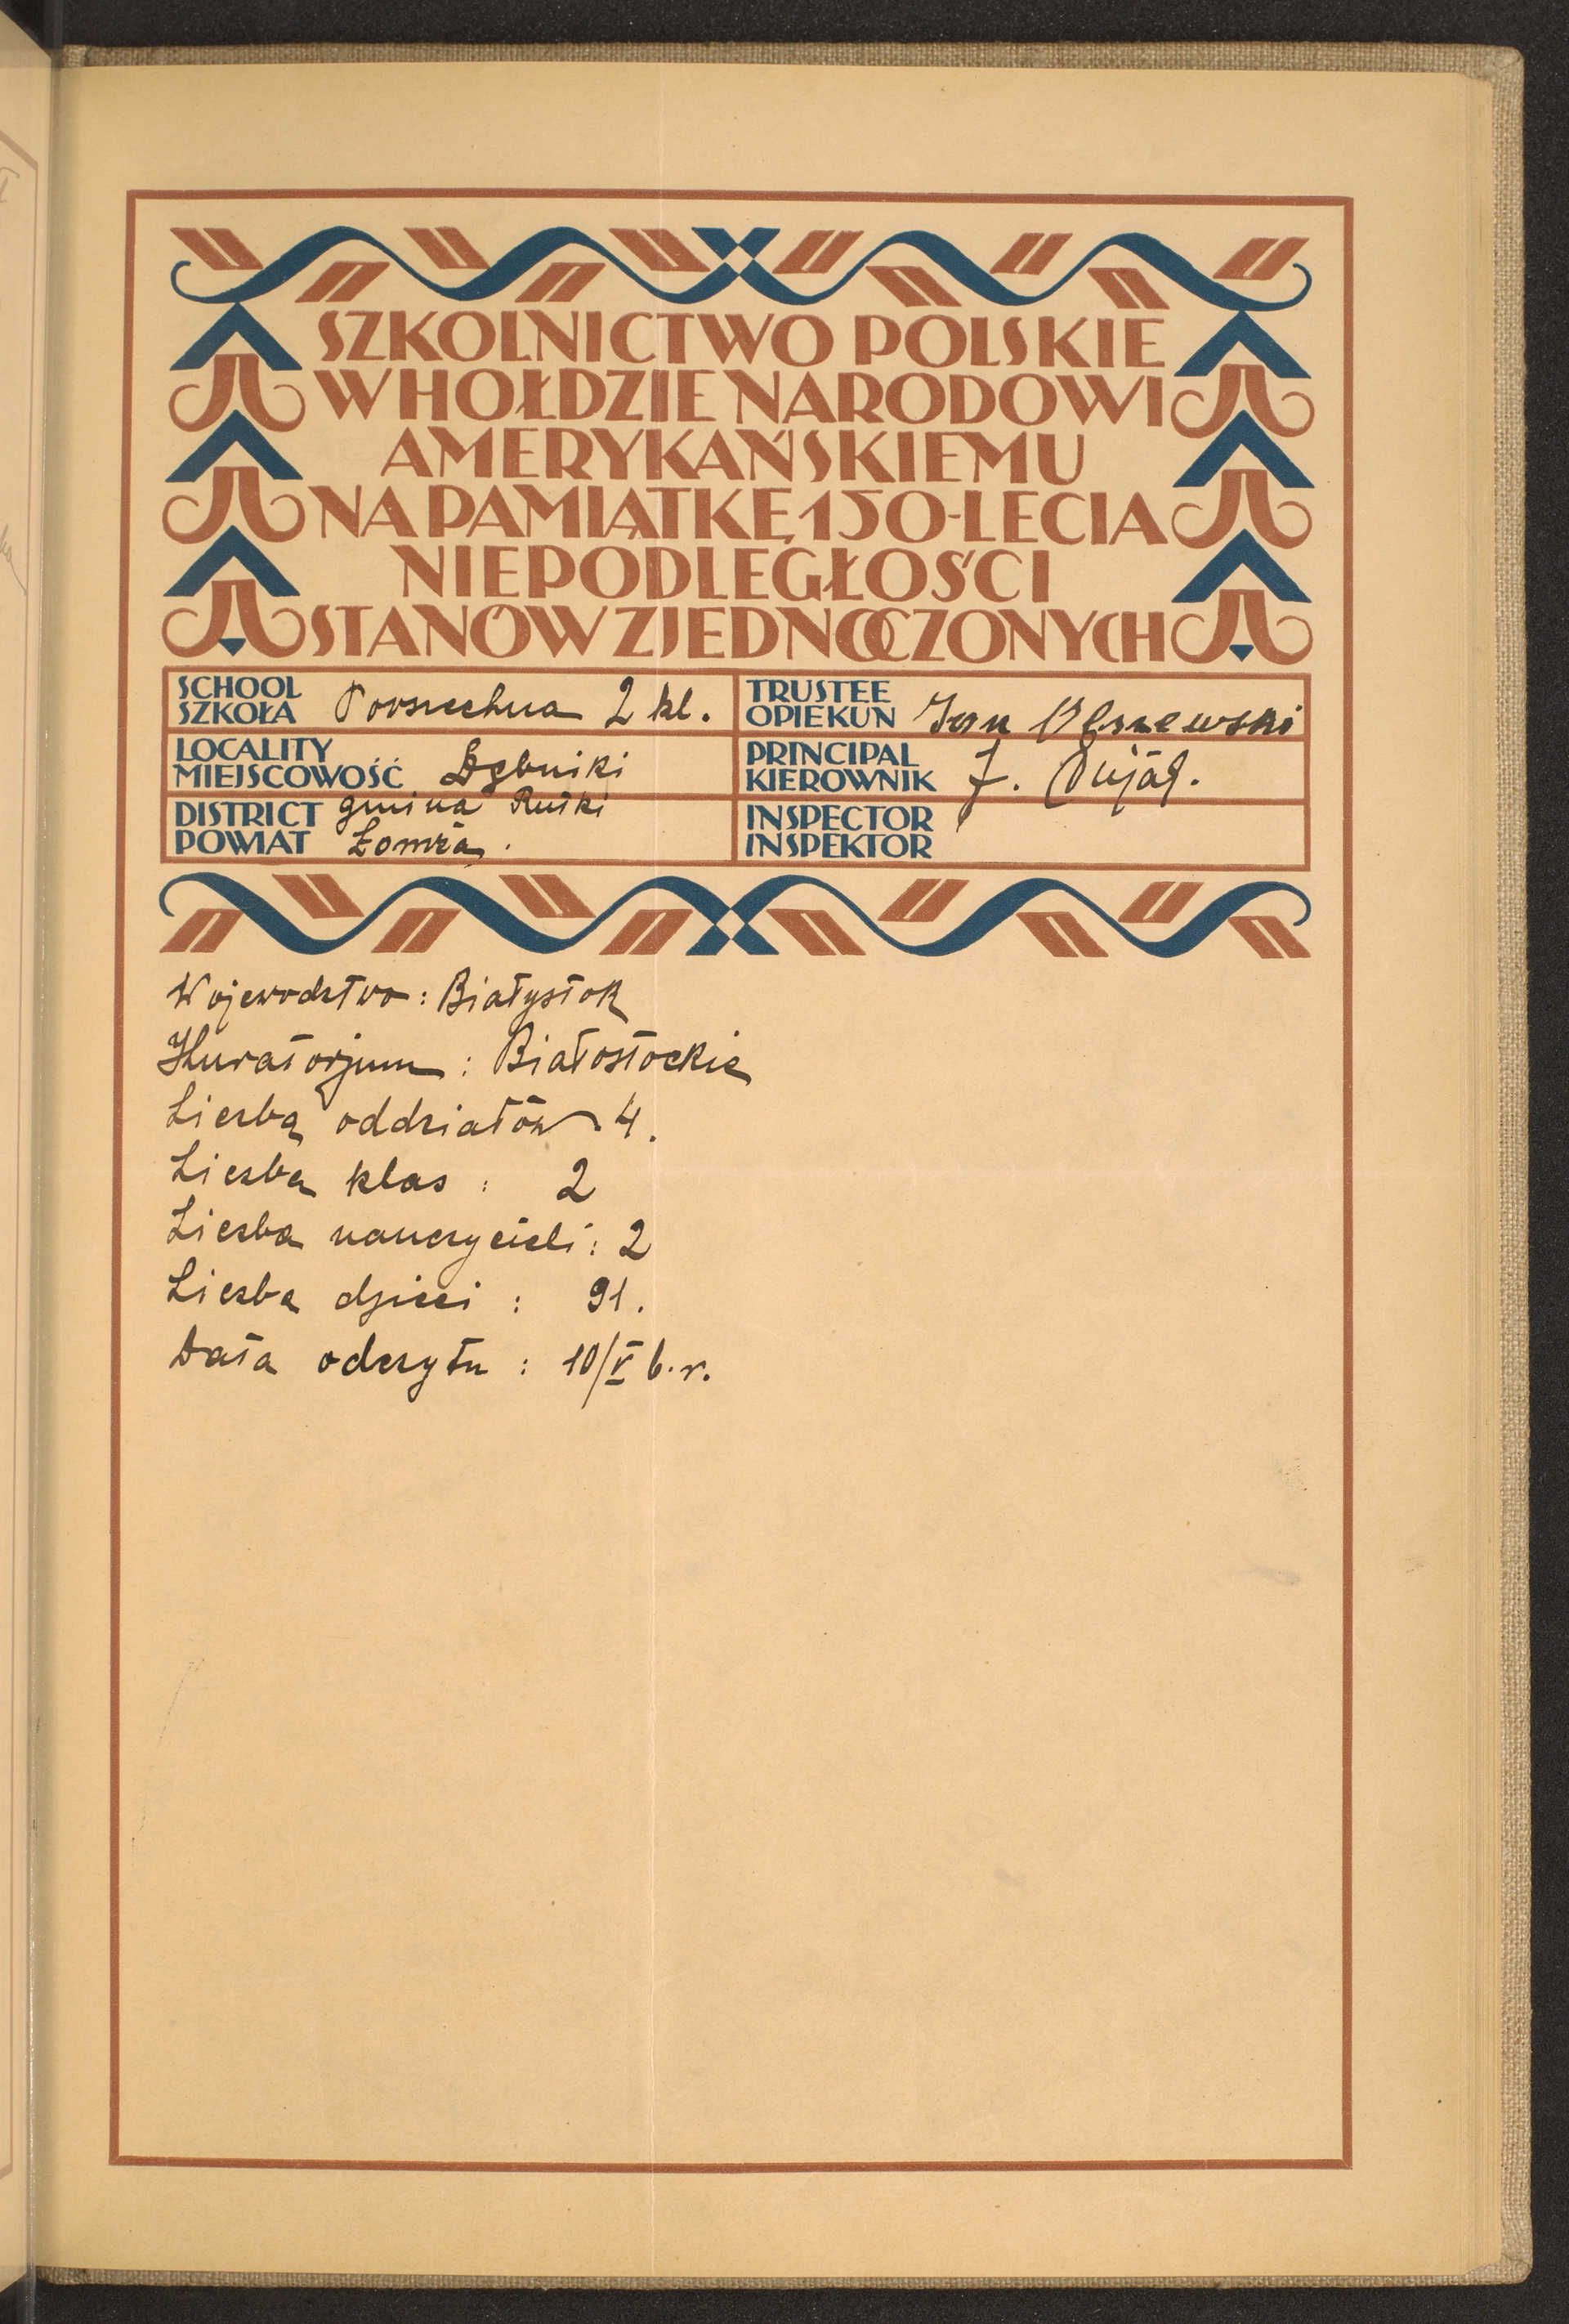 SZKOLNICTWO POLSKIE
W HOŁDZIE NARODOWI
AMERYKAŃSKIEMU
NA PAMIĄTKĘ 150-LECIA
NIEPODLEGŁOŚCI
STANÓW ZJEDNOCZONYCH
SCHOOL
SZKOŁA Powszechna 2 kl.
TRUSTEE
OPIEKUN Jan Olszewski
LOCALITY
MIEJSCOWOŚĆ Dębniki
PRINCIPAL
KIEROWNIK J.
DISTRICT gmina Rutki
POWIAT Łomża.
INSPECTOR
INSPEKTOR
Wojewodztwo: Białystok
Kuratorjum: Białostockie
Liczba oddziałów 4.
Liczba klas: 2
Liczba nauczycieli: 2
Liczba dzieci: 91.
Data odczytu: 10/V b.r.